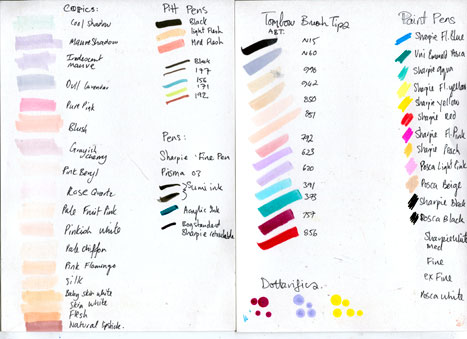 Copics:
Cool Shadow
Mauve Shadow
Iridescent
mauve
Dull Lavender
Pure Pink
Blush
Grayish
Cherry
Pink Beryl
Rose Quartz
Pale Fruit Pink
Pinkish White
Pale Chiffon
Pink Flamingo
Silk
Baby skin white
Skin White
Flesh
Natural lipstick.
Pitt Pens
Black
light flesh
Med Flesh
Black
177
156
171
192
Pens:
Sharpie: Fine Pen
Prisma 03
Sumi ink
Acrylic Ink
Bog standard
Sharpie retractable
Tombow Brush Tips
ABT.
N15
N60
998
942
850
851
792
623
620
391
373
757
856
Dottarifica.
Paint Pens
Sharpie Fl. Blue
Uni Emerald Posca
Sharpie aqua
Sharpie Fl. yellow
Sharpie yellow
Sharpie Red
Sharpie Fl. Pink
Sharpie Peach
Posca Light Pink
Posca Beige
Sharpie Black
Posca Black
Sharpie white
med
Fine
ex Fine
Posca white